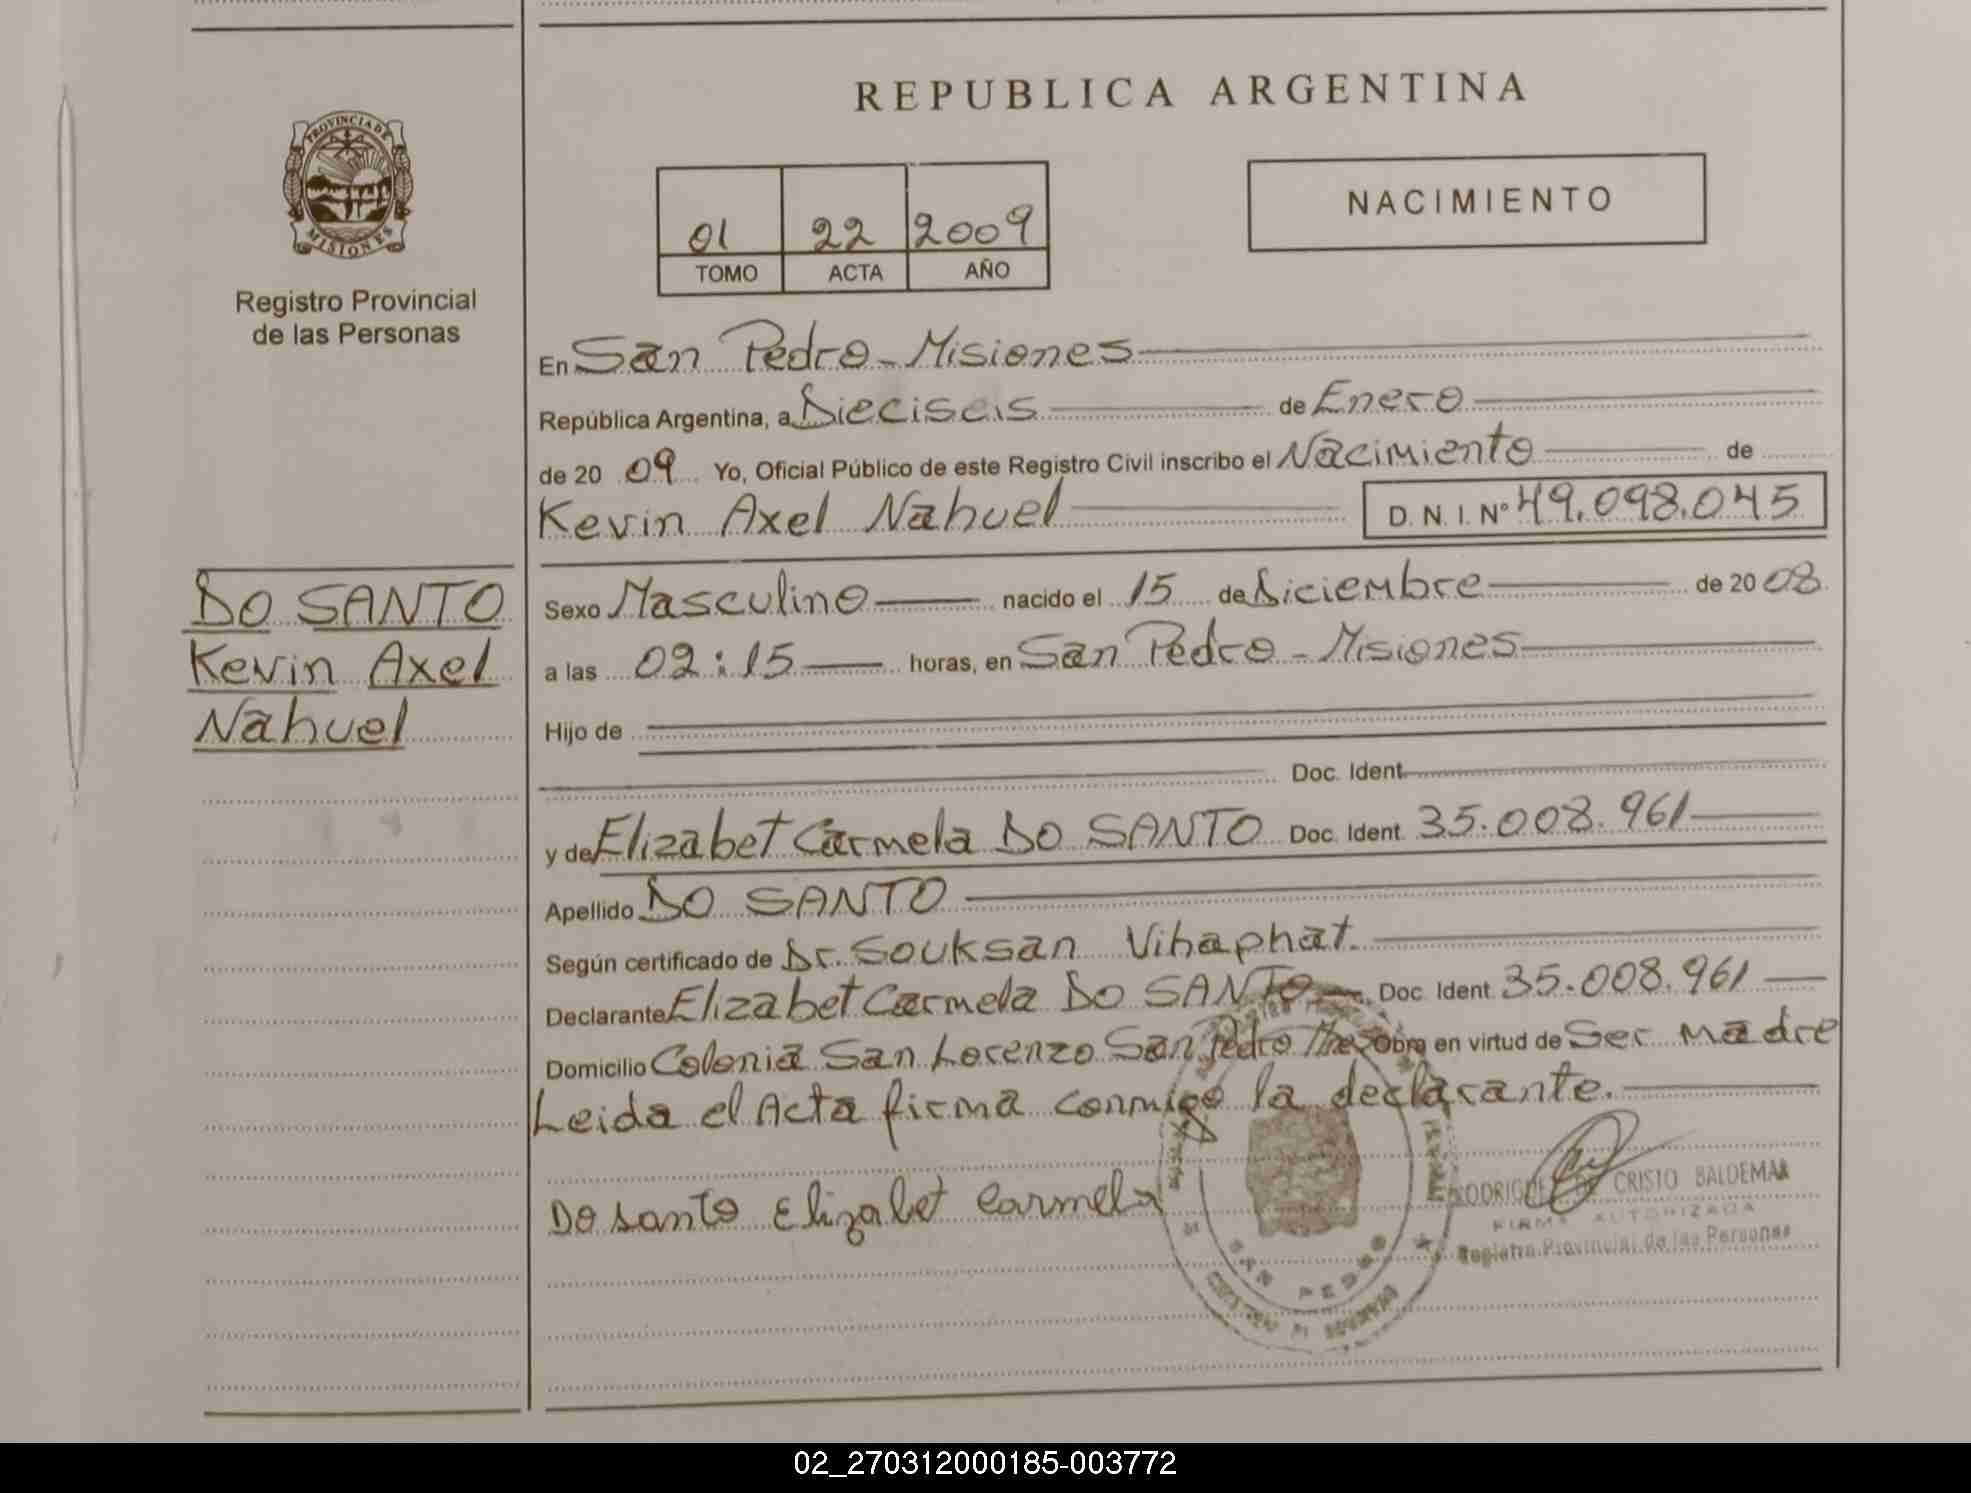 REPUBLICA ARGENTINA
PROVINCIA DE
MISIONES
Registro Provincial
de las Personas
01 22 2009
TOMO ACTA AÑO
NACIMIENTO
En San Pedro - Misiones
República Argentina, a Dieciseis de Enero
de 20 09 Yo, Oficial Público de este Registro Civil inscribo el Nacimiento de
Kevin Axel Nahuel D. N. I. Nº 49.098.045
DO SANTO
Kevin Axel
Nahuel
Sexo Masculino nacido el 15 de Diciembre de 20 08
a las 02:15 horas, en San Pedro - Misiones
Hijo de
Doc. Ident.
y de Elizabet Carmela DO SANTO Doc. Ident. 35.008.961
Apellido DO SANTO
Según certificado de Dr. Souksan Vihaphat.
Declarante Elizabet Carmela DO SANTO Doc. Ident. 35.008.961
Domicilio Colonia San Lorenzo San Pedro Mnes Obra en virtud de Ser madre
Leida el Acta firma conmigo la declarante.
Do santo Elizabet Carmela
CRISTO BALDEMAR
FIRMA AUTORIZADA
Registro Provincial de las Personas
SAN PEDRO
02_270312000185-003772